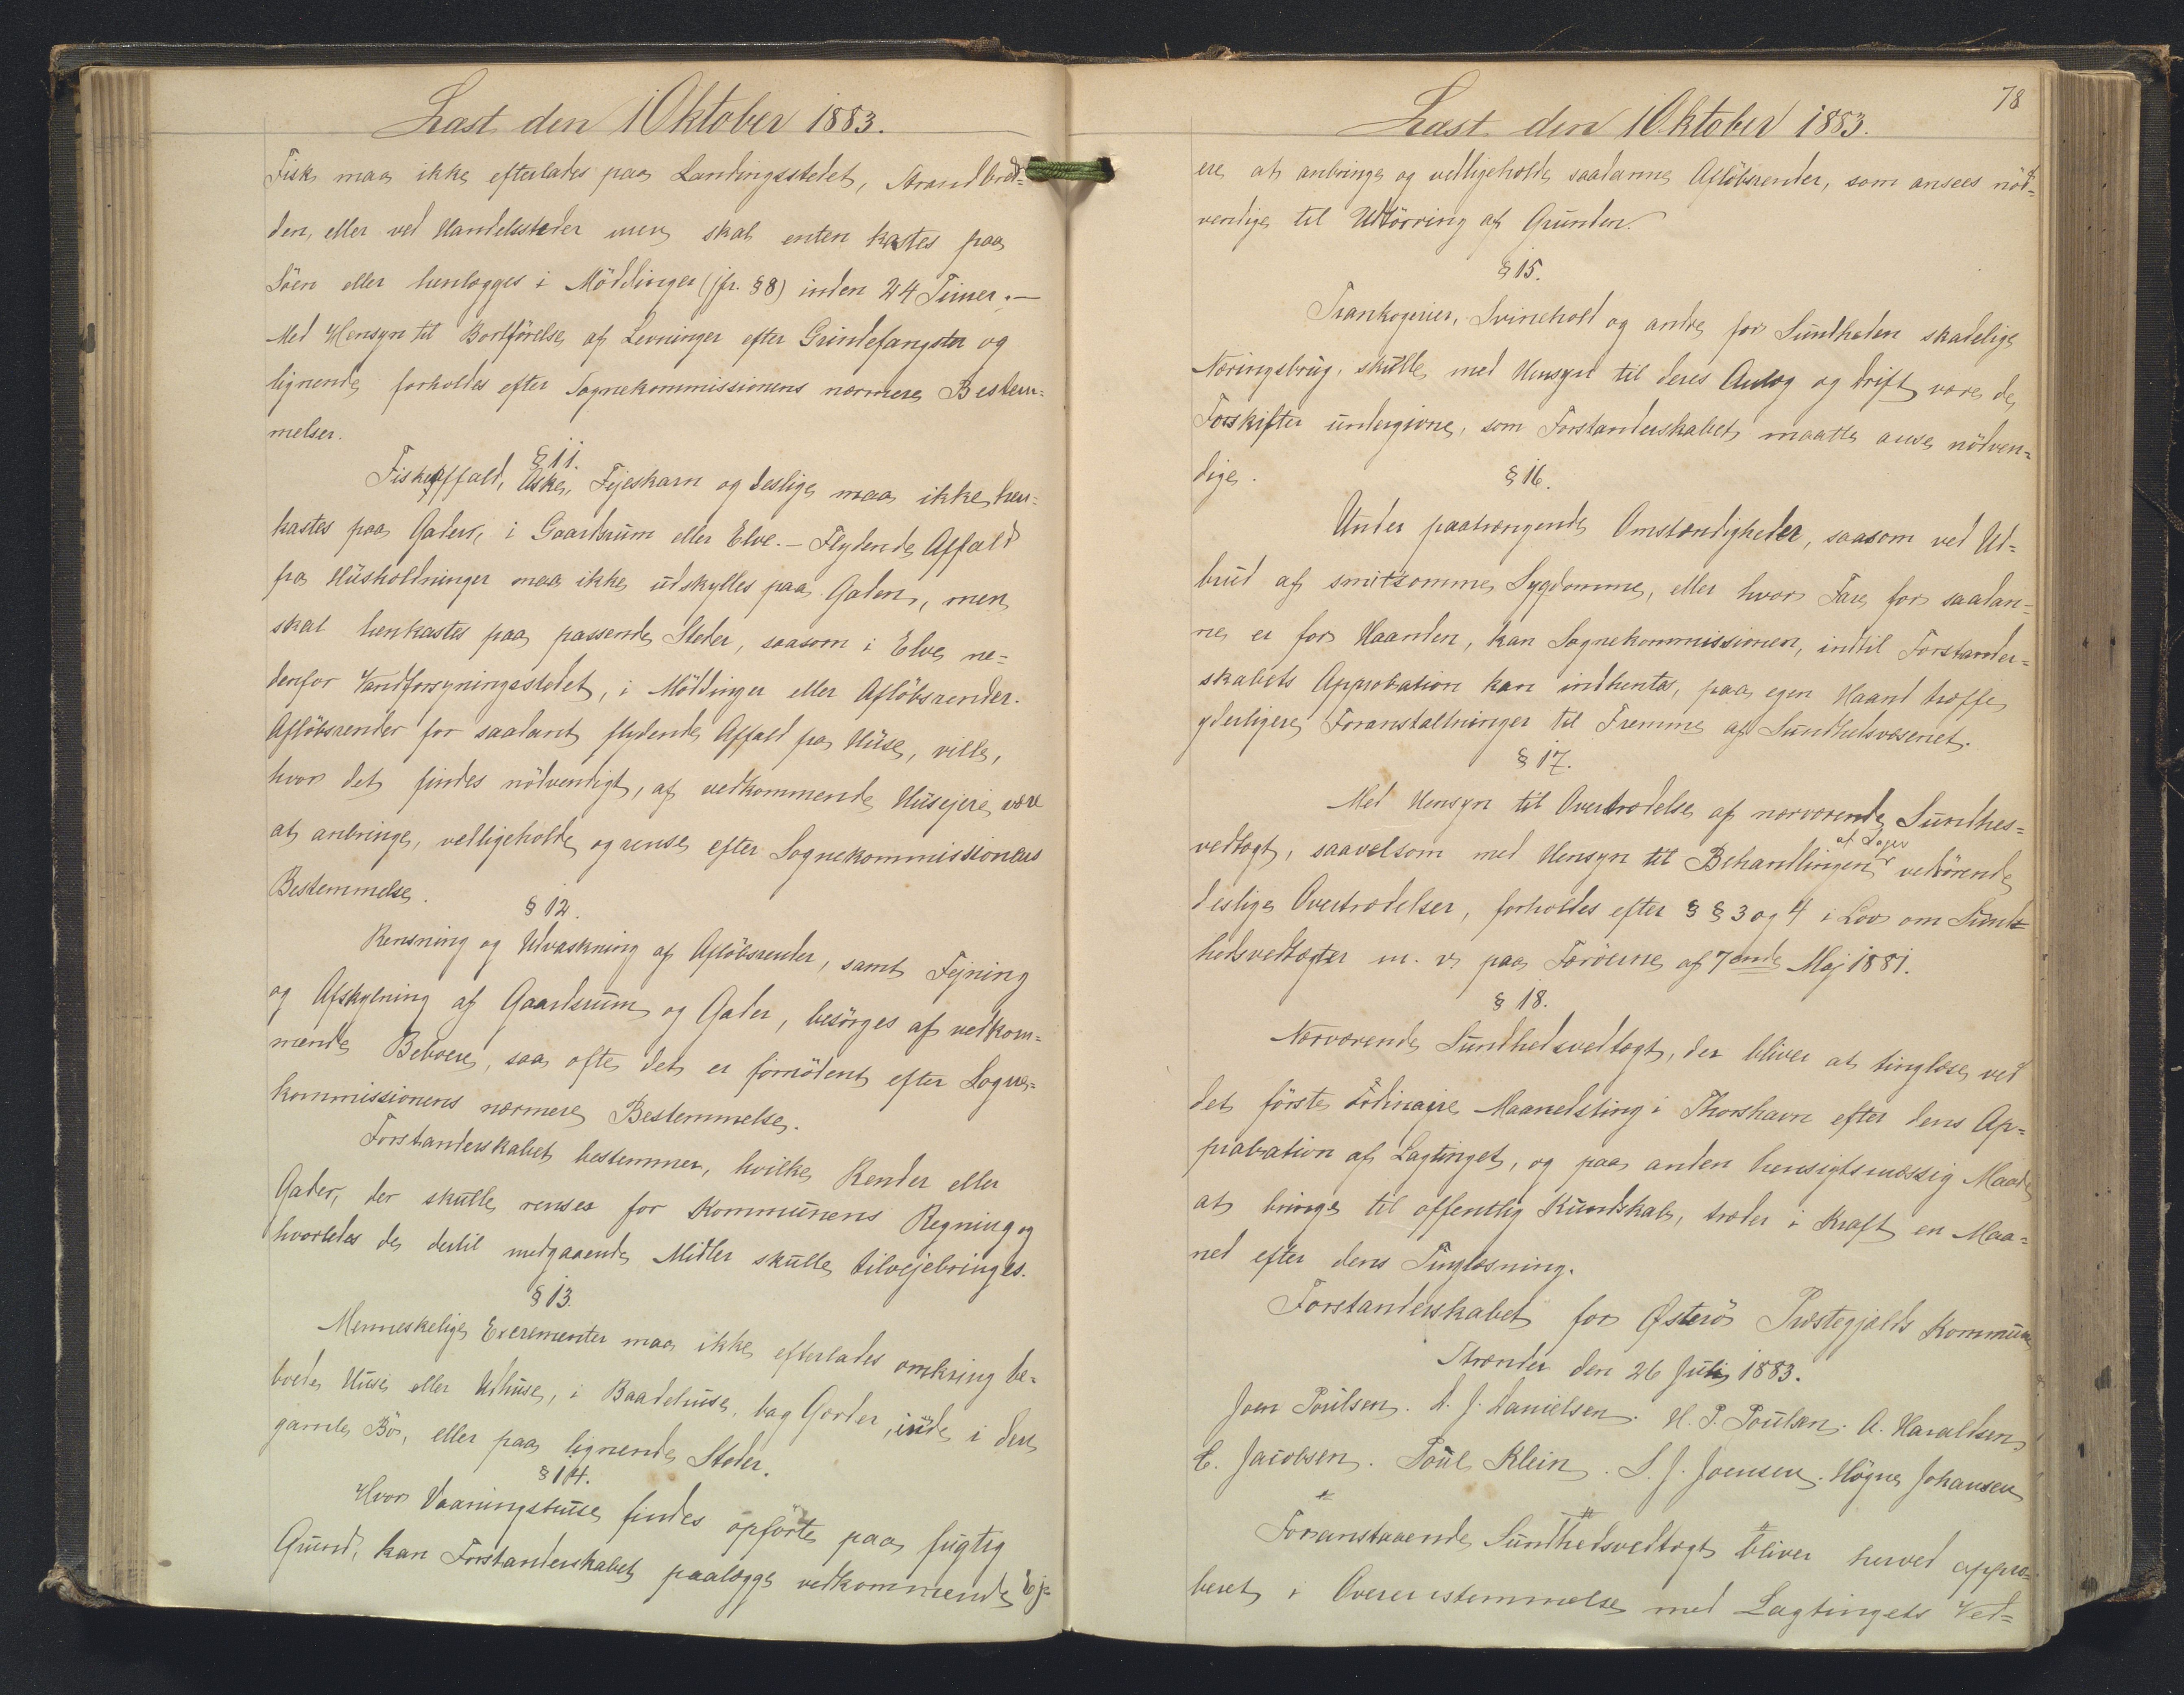 Læst den 1 Oktober 1883.
Fisk maa ikke efterlades paa Landingsstedet, Strandbred=
den, eller ved Handelssteder men skal enten kastes paa
Söen eller henlægges i Möddinger (jfr. §8) inden 24 Timer. —
Med Hensyn til Bortförelse af Levninger efter Grindefangster og
lignende forholdes efter Sognekommissionens nærmere Bestem=
melser.
§ 11.
Fiskeaffald, Aske, Fejeskarn og deslige maa ikke hen=
kastes paa Gader, i Gaardsrum eller Elve. — Flydende Affald
fra Husholdninger maa ikke udskylles paa Gaden, men
skal henkastes paa passende Steder, saasom i Elve ne=
denfor Vandforsyningsstedet, i Möddinger eller Aflöbsrender.
Aflöbsrender for saadant flydende Affald fra Huse, ville,
hvor det findes nödvendigt, af vedkommende Husejere være
at anbringe, vedligeholde og rense efter Sognekommissionens
Bestemmelse.
§ 12.
Rensning og Udvaskning af Aflöbsrender, samt Fejning
og Afskylning af Gaardsrum og Gader, besörges af vedkom=
mende Beboere, saa ofte det er fornödent efter Sogne=
kommissionens nærmere Bestemmelse.
Forstanderskabet bestemmer, hvilke Render eller
Gader, der skulle renses for Kommunens Regning og
hvorledes de dertil medgaaende Midler skulle tilvejebringes.
§ 13.
Menneskelige Excrementer maa ikke efterlades omkring be=
boede Huse eller Udhuse, i Baadehuse, bag Gærder, inde i den
gamle Bö, eller paa lignende Steder.
§ 14.
Hvor Vaaningshuse findes opförte paa fugtig
Grund, kan Forstanderskabet paalægge vedkommende Ej=
78
Læst den 1 Oktober 1883.
ere at anbringe og vedligeholde saadanne Aflöbsrender, som ansees nöd=
vendige til Udtörring af Grunden.
§ 15.
Trankogerier, Svinehold og andre for Sundheden skadelige
Næringsbrug, skulle med Hensyn til deres Anlæg og Drift være de
Forskrifter undergivne, som Forstanderskabet maatte anse nödven=
dige.
§ 16.
Under paatrængende Omstændigheder, saasom ved Ud=
brud af smitsomme Sygdomme, eller hvor Fare for saadan=
ne er for Haanden, kan Sognekommissionen, indtil Forstander=
skabets Approbation kan indhentes, paa egen Haand træffe
yderligere Foranstaltninger til Fremme af Sundhedsvæsenet.
§ 17.
Med Hensyn til Overtrædelse af nærværende Sundheds=
vedtægt, saavelsom med Hensyn til Behandlingen af Sager vedrörende
deslige Overtrædelser, forholdes efter § § 3 og 4 i Lov om Sund=
hedsvedtægter m. v. paa Færöerne af 7ende Maj 1881.
§ 18.
Nærværende Sundhedsvedtægt, der bliver at tinglæse ved
det förste ordinaire Maanedsting i Thorshavn efter dens Ap=
probation af Lagtinget, og paa anden hensigtsmæssig Maade
at bringe til offentlig Kundskab, træder i Kraft en Maa=
ned efter dens Tinglæsning.
Forstanderskabet for Østerö Præstegjælds Kommune
Strænder den 26 Juli 1883.
Joen Poulsen. D. J. Danielsen. H. P. Poulsen. A. Haraldsen
C. Jacobsen. Poul Klein. S. J. Joensen. Högne Johansen
Foranstaaende Sundhedsvedtægt bliver herved appro=
beret i Overensstemmelse med Lagtingets Ved=